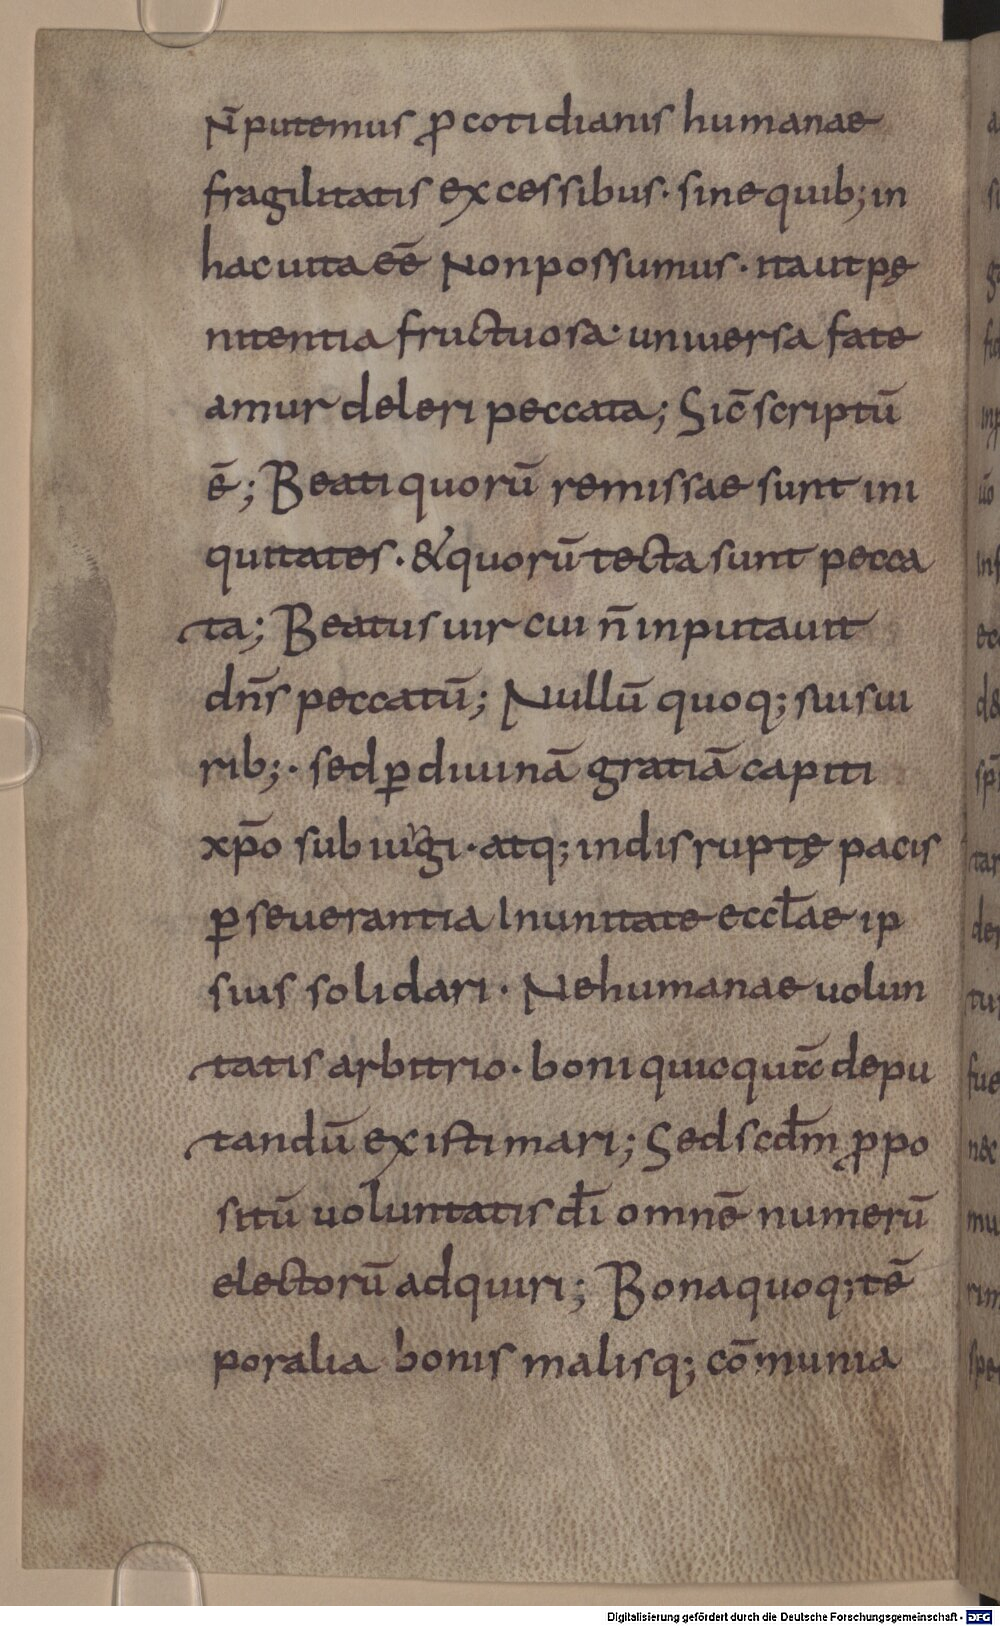 N̄ putemus ꝓ cotidianis humanae
fragilitatis excessibus· sine quib; in
hac uita eē Non possumus· ita ut pę
nitentia fructuosa· uniuersa fate
amur deleri peccata; Sic̄ scriptū
ē; Beati quorū remissae sunt ini
quitates· & quorū tecta sunt pecca
ta; Beatus uir cui n̄ inputauit
dn̄s peccatū; Nullū quoq; suis ui
rib;· sed ꝑ diuinā gratiā capiti
xp̄o subiugi· atq; indisruptę pacis
ꝑseuerantia In unitate eccł̄ae ip
sius solidari· Ne humanae uolun
tatis arbitrio· boni quicquid depu
tandū existimari; Sed scd̄m ꝓpo
sitū uoluntatis dī omnē numerū
electorū adquiri; Bona quoq; tē
poralia bonis malisq; cōmunia
Digitalisierung gefördert durch die Deutsche Forschungsgemeinschaft - DFG